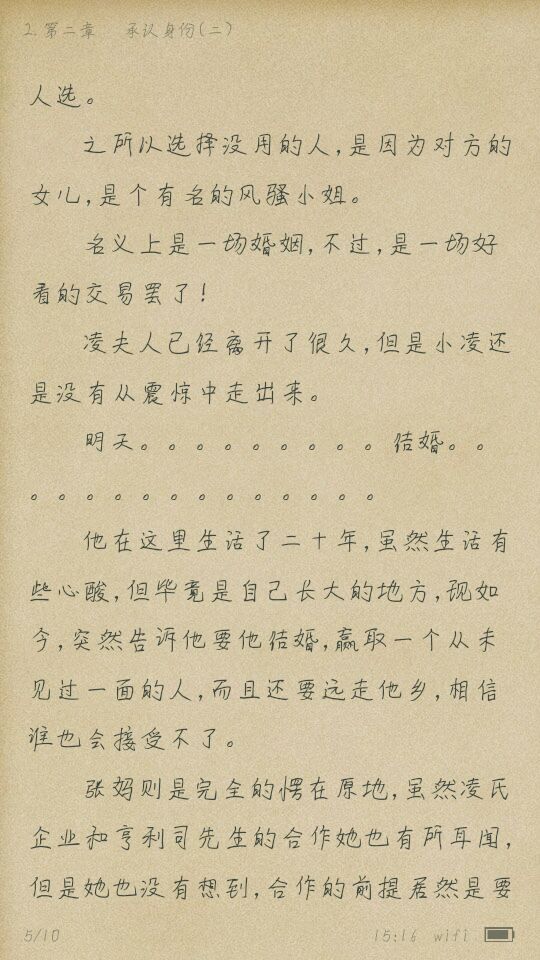 2.第二章 承认身份(二)
人选。
之所以选择没用的人,是因为对方的
女儿,是个有名的风骚小姐。
名义上是一场婚姻,不过,是一场好
看的交易罢了!
凌夫人已经离开了很久,但是小凌还
是没有从震惊中走出来。
明天。。。。。。。。。。结婚。。
。。。。。。。。。。。。。
他在这里生活了二十年,虽然生活有
些心酸,但毕竟是自己长大的地方,现如
今,突然告诉他要他结婚,赢取一个从未
见过一面的人,而且还要远走他乡,相信
谁也会接受不了。
张妈则是完全的愣在原地,虽然凌氏
企业和亨利司先生的合作她也有所耳闻,
但是她也没有想到,合作的前提居然是要
5/10 15:16 wifi